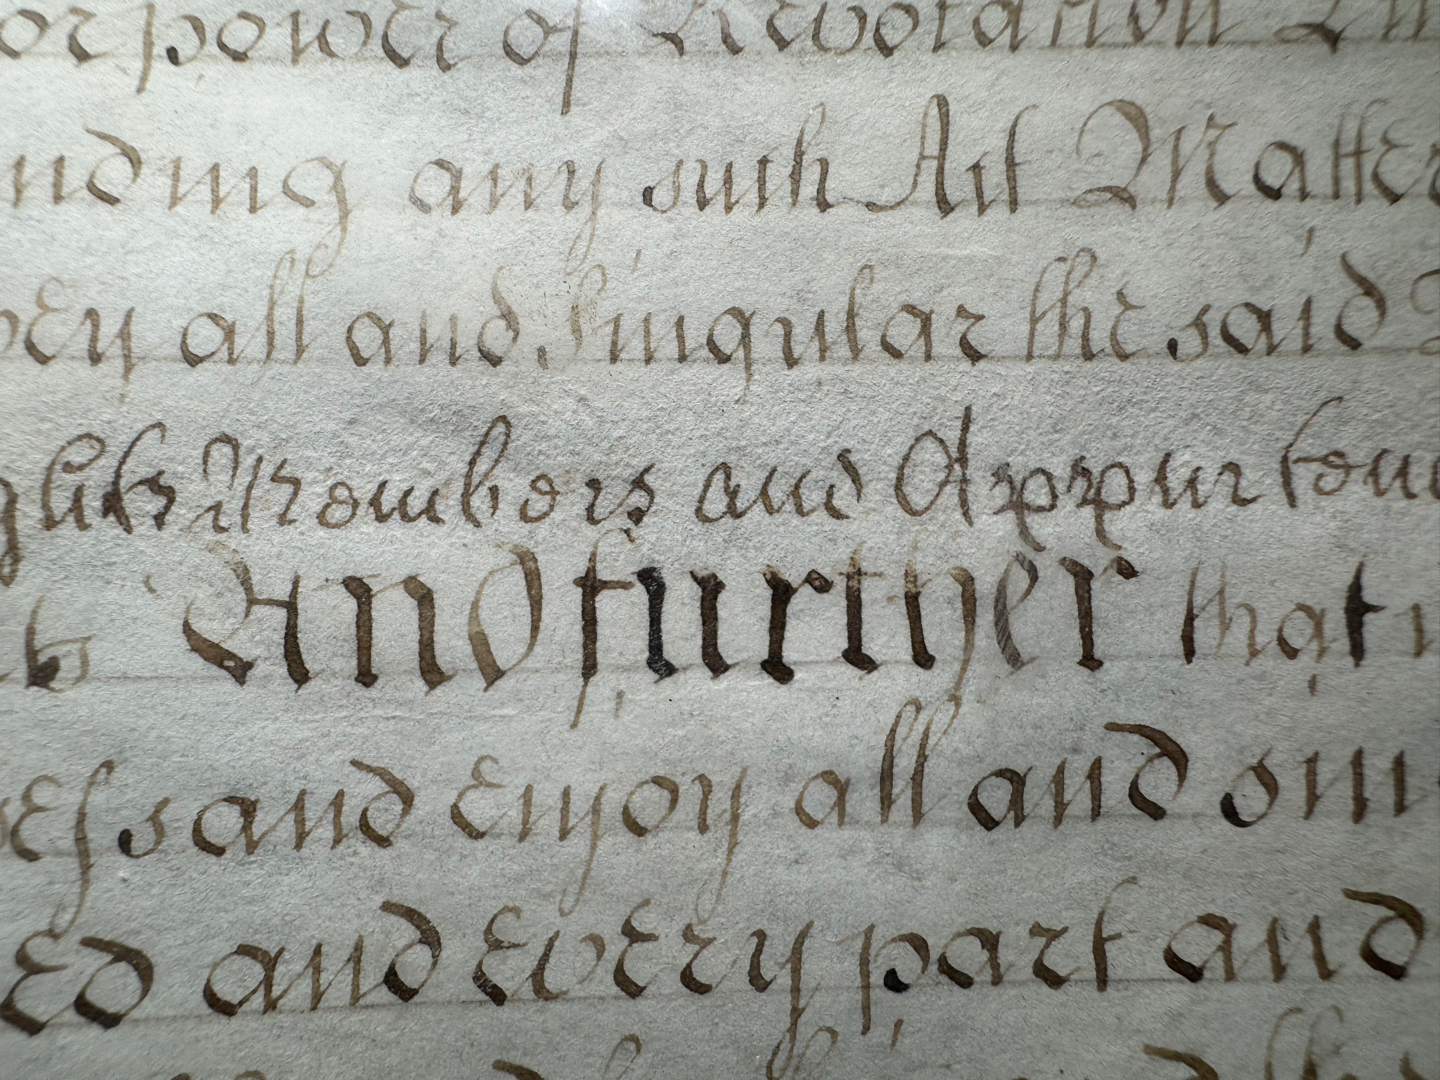 or power of Revocation Lim
nding any such Act Matter
vey all and Singular the said
ghts Members and Appurtena
And further that
sess and Enjoy all and sin
ed and Every part and